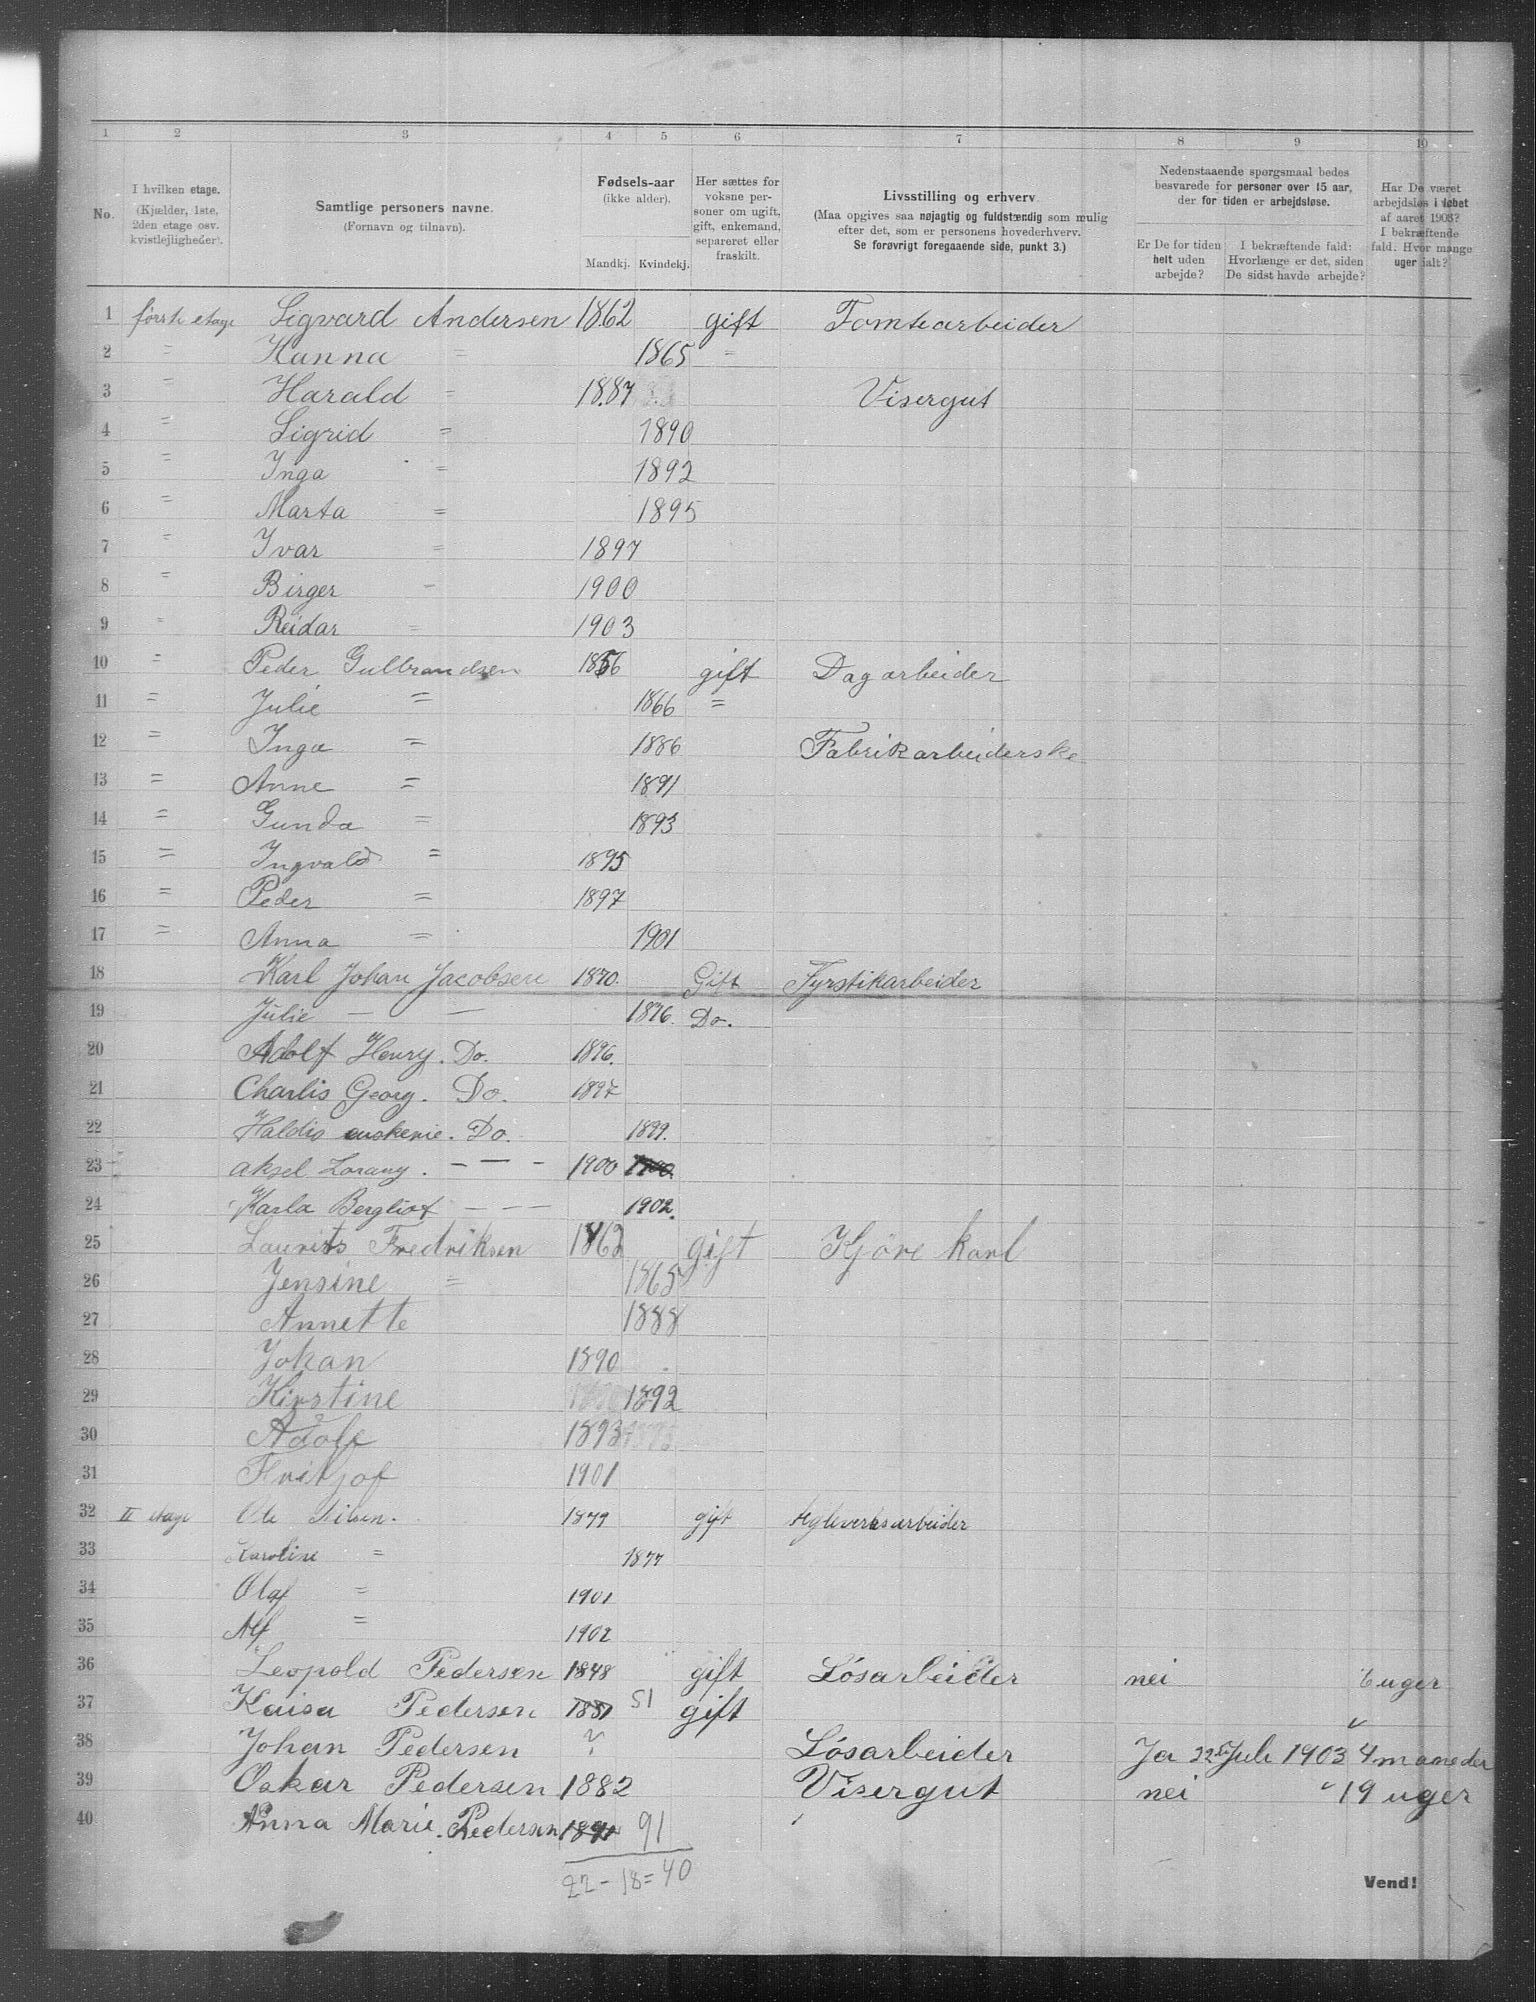 1 2 3 4 5 6 7 8 9 10
No.
I hvilken etage.
(Kjælder, 1ste,
2den etage osv.
kvistlejligheder).
Samtlige personers navne.
(Fornavn og tilnavn).
Fødsels-aar
(ikke alder).
Mandkj. Kvindekj.
Her sættes for
voksne per-
soner om ugift,
gift, enkemand,
separeret eller
fraskilt.
Livsstilling og erhverv
(Maa opgives saa nøjagtig og fuldstændig som mulig
efter det, som er personens hovederhverv.
Se forøvrigt foregaaende side, punkt 3.)
Nedenstaaende spørgsmaal bedes
besvarede for personer over 15 aar,
der for tiden er arbejdsløse.
Er De for tiden
helt uden
arbejde?
I bekræftende fald:
Hvorlænge er det, siden
De sidst havde arbejde?
Har De været
arbejdsløs i løbet
af aaret 1903?
I bekræftende
fald. Hvor mange
uger ialt?
1 første etage Sigvard Andersen 1862 gift Tomtearbeider
2 " Hanna = 1865 "
3 " Harald = 1887 Visergut
4 " Sigrid = 1890
5 " Inga = 1892
6 = Marta = 1895
7 " Ivar = 1897
8 " Birger - 1900
9 " Reidar = 1903
10 = Peder Gulbrandsen 1856 gift Dagarbeider
11 = Julie = 1866 =
12 = Inga = 1886 Fabrikarbeiderske
13 = Anne = 1891
14 = Gunda = 1893
15 = Ingvald = 1895
16 = Peder = 1897
17 = Anna = 1901
18 Karl Johan Jacobsen 1870. Gift Fyrstikarbeider
19 Julie — — 1876. Do.
20 Adolf Henry. Do. 1896.
21 Charlis Georg. Do. 1897
22 Haldis Do. 1899.
23 Aksel . — — - 1900 1900.
24 Karla Bergliot — - — 1902.
25 Laurits Fredriksen 1862 gift Kjøre karl
26 Jensine = 1865
27 Annette 1888
28 Johan 1890
29 Kirstine 1892
30 Adolf 1893
31 Fritjof 1901
32 II etage Ole 1879 gift teglverksarbeider
33 Karoline = 1877
34 Olaf = 1901
35 Alf = 1902
36 Leopold Pedersen 1848 gift Løsarbeider nei 6 uger
37 Kaisa Pedersen 1851 51 gift "
38 Johan Pedersen ? Løsarbeider Ja 22 Juli 1903 4 maneder
39 Oskar Pedersen 1882 Visergut nei " 19 uger
40 Anna Marie. Pedersen 1891 91
22 - 18 = 40
Vend!